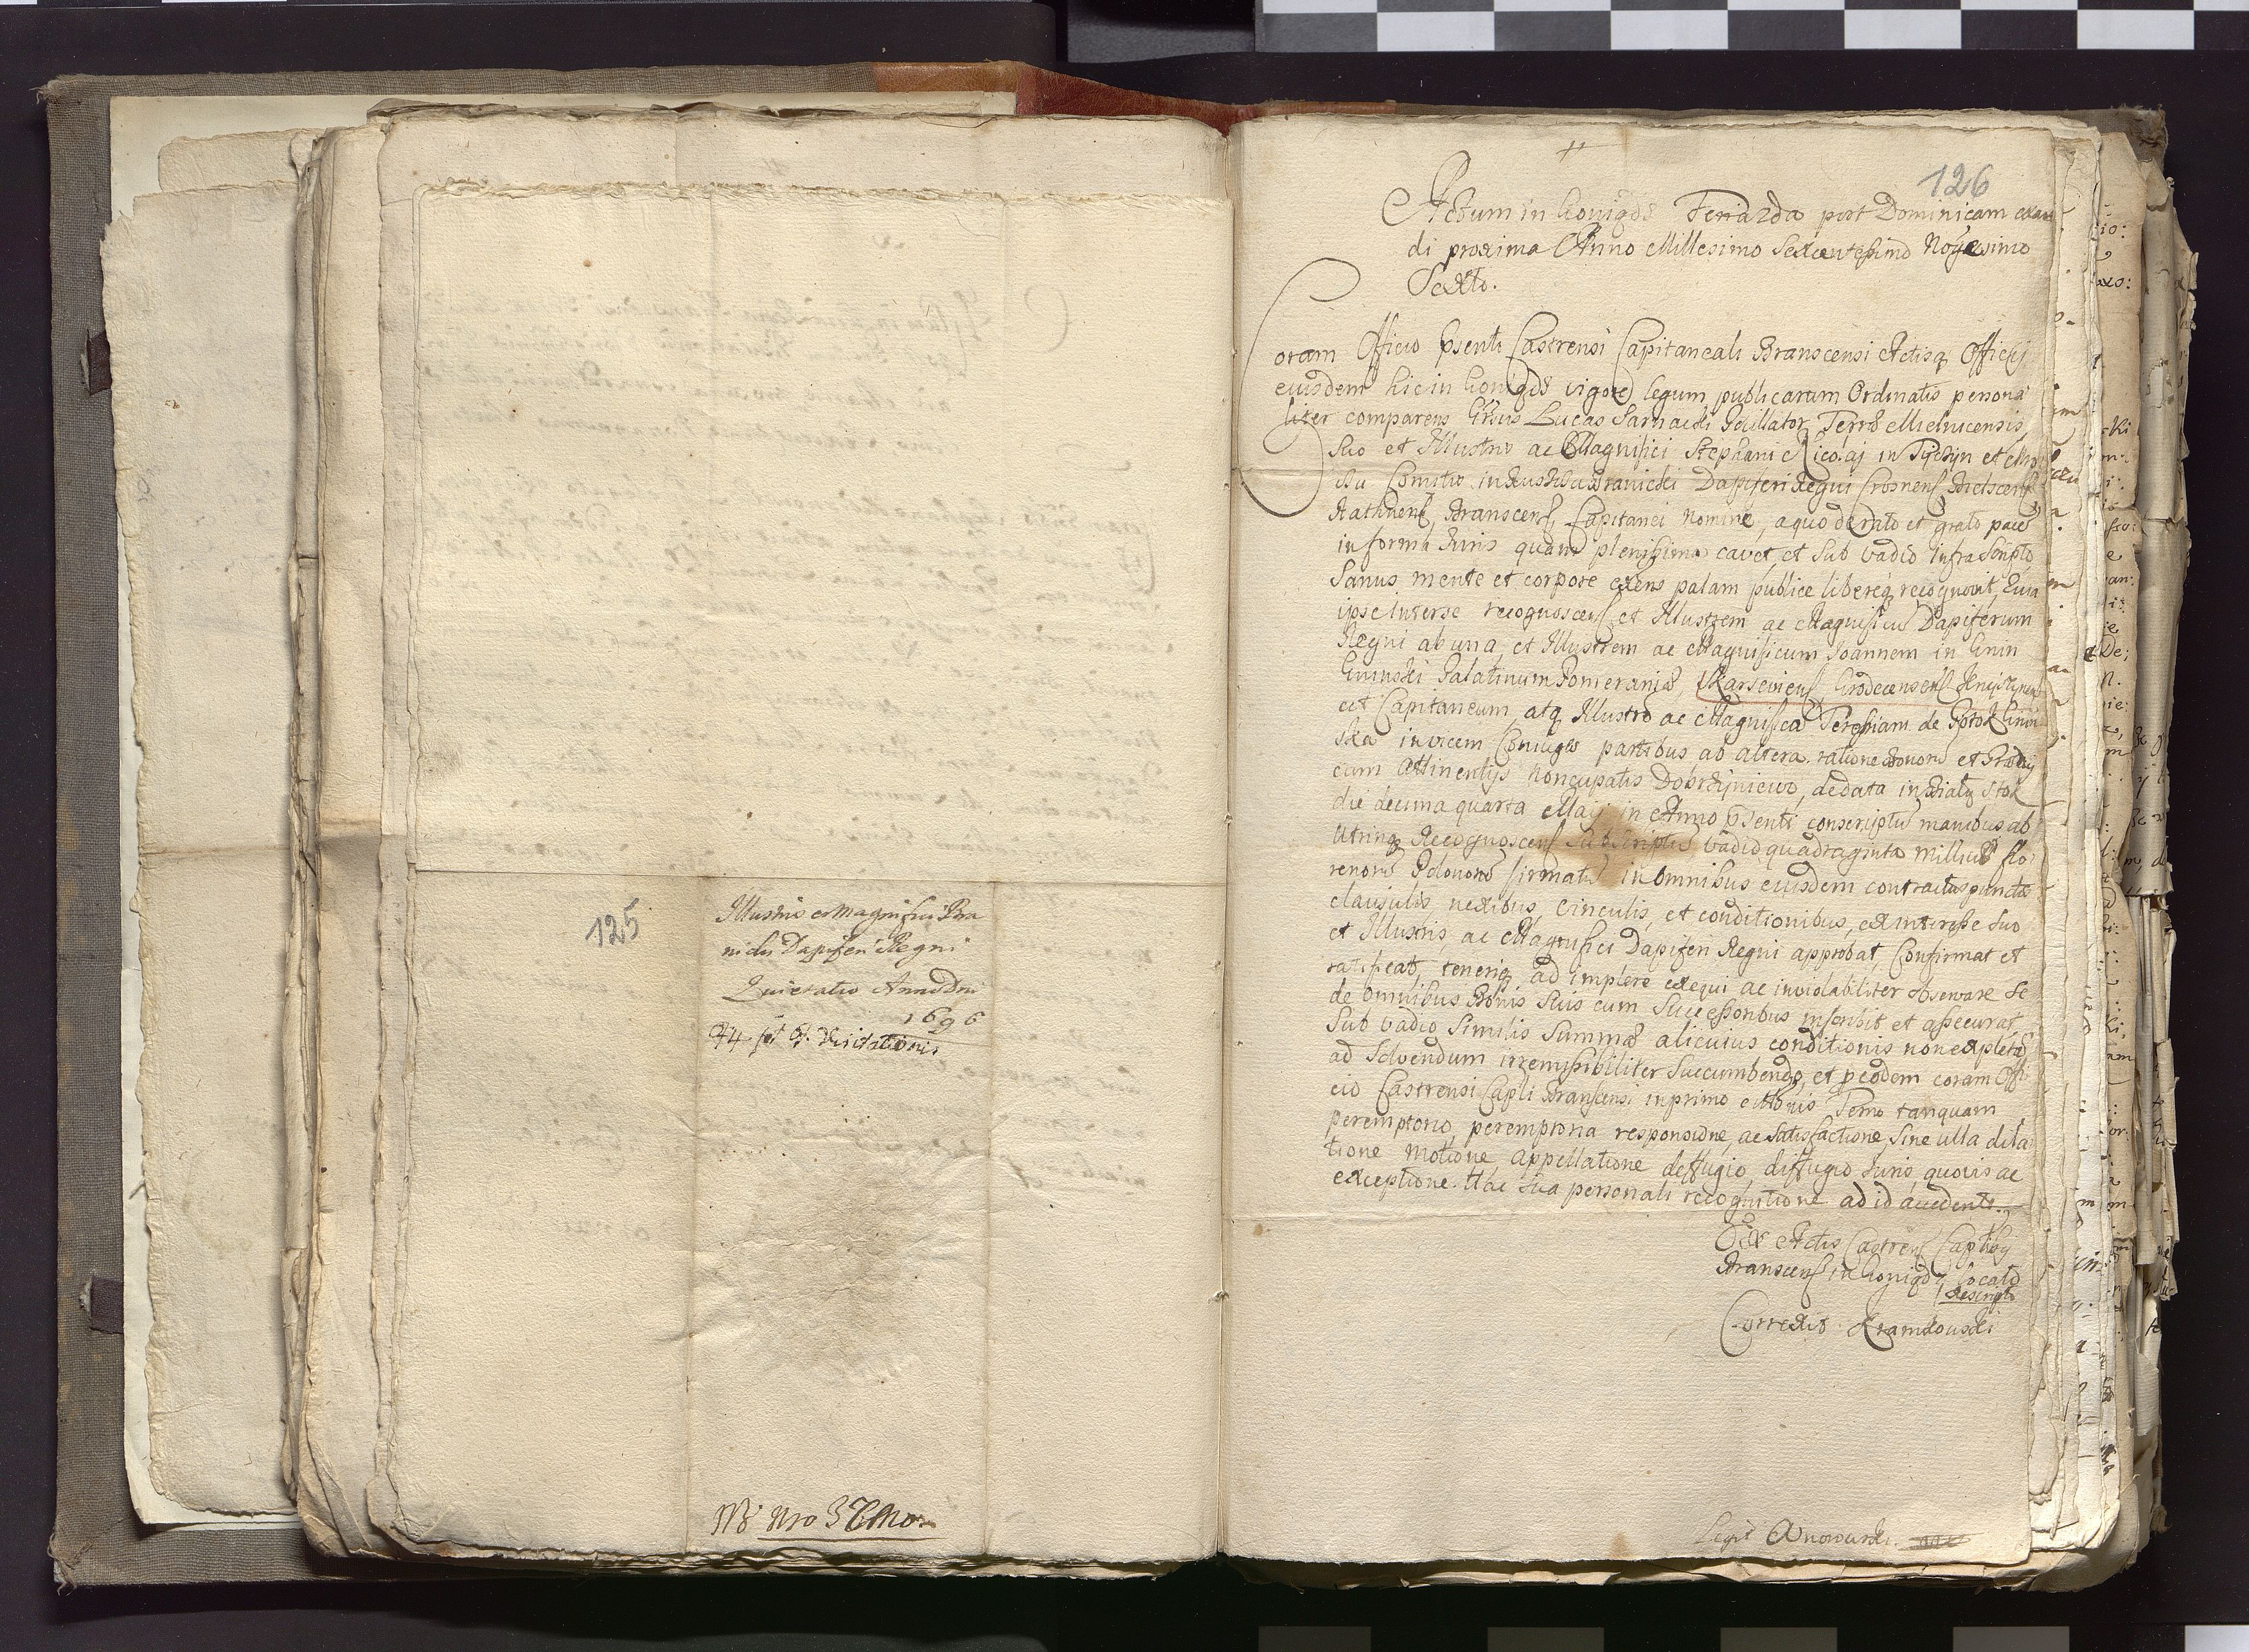 125
Illustris et Magnifici Bra
nicki Dapiferi Regni
Quietatio Anno Dni
1696
F 4 post F. Visitationis
Nro 3tio
126
Actum in Goniądz Feria 2da post Dominicam exau
di proxima Anno Millesimo Sexcentesimo Nonagesimo
Sexto.
Coram Officio Psenti Castrensi Capitaneali Branscensi Actisq Officij
eiusdem hic in Goniądz vigore legum publicarum Ordinatis persona
liter comparens Grsus Lucas Sarnacki Terrae Mielnicensis
Suo et Illustris ac Magnifici Stephani Nicolaj in Tyczyn et
Comitis in Ruszcza Branicki Dapiferi Regni Crosnens Bielscens
Rathnens, Branscens, Capitanei nomine, a quo de rato et grato pnes
in forma Juris quam plenissima cavet, et sub vadio infra scripto
Sanus mente et corpore exens palam publice libereq recognovit, Quia
ipse inter se recognoscens et Illustrem ac Magnificum Dapiferum
Regni ab una, et Illustrem ac Magnificum Joannem in Gnin
Gninski Palatinum Pomeraniae, Skarseviens Grodecensens Knyszynens
et Capitaneum, atq Illustre ac Magnifica Teresiam de Potok Gnin
ska invicem Coniuges partibus ab altera. ratione bonoru et Praedij
cum Attinentijs noncupatis Dobrzyniewo, de data in Białystok
die decima quarta Maij in Anno Psenti conscriptu manibus ab
utrinq Recognoscens subscriptu vadio quadraginta millius flo
renoru Polonoru firmatu in omnibus eiusdem contractus punctis
clausulis nexibus, vinculis, et conditionibus, ex interesse suo
et Illustris, ac Magnifici Dapiferi Regni approbat, Confirmat et
ratificat, teneriq ad implere exequi ac inviolabiliter observare se
de omnibus Bonis suis cum Successoribus inscribit et assecurat
Sub vadio Similis Summae alicuius conditionis non expletae
ad Solvendum irremissibiliter succumbendo, et peodem coram Offi
cio Castrensi Capli Branscensi in primo citationis Termo tanquam
peremptorio, peremptoria responsione, ac Satisfactione, Sine ulla dila
tione motione, appellatione deffugio, diffugio Juris, quovis ac
exceptione. Hac sua personali recognitione ad id accedente.
Ex Actis Castrens Capthbg
Branscens in Goniądz locatis
Rescript
Correxit Kramkowski
Legit